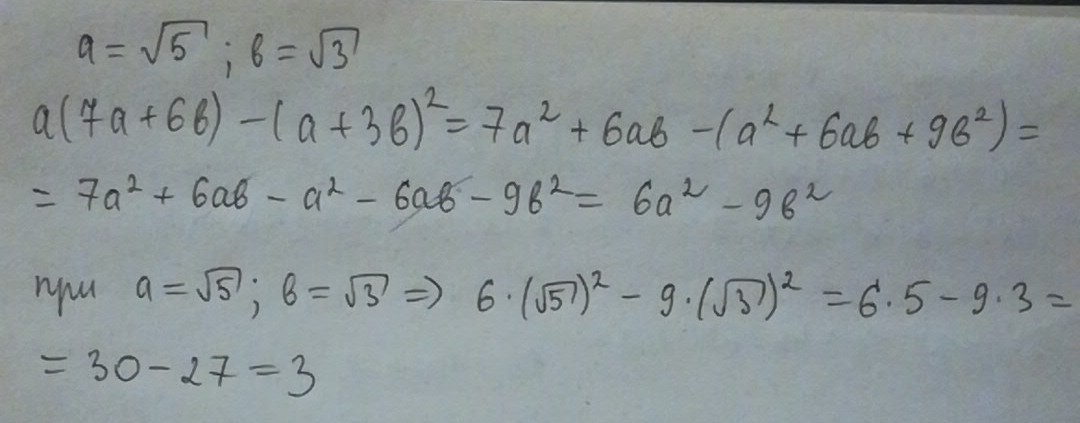 a = √5 ; в = √3
a(7a + 6в) - (a + 3в)² = 7a² + 6aв - (a² + 6aв + 9в²) =
= 7a² + 6aв - a² - 6aв - 9в² = 6a² - 9в²
при a = √5 ; в = √3 ⇒ 6 · (√5)² - 9 · (√3)² = 6 · 5 - 9 · 3 =
= 30 - 27 = 3